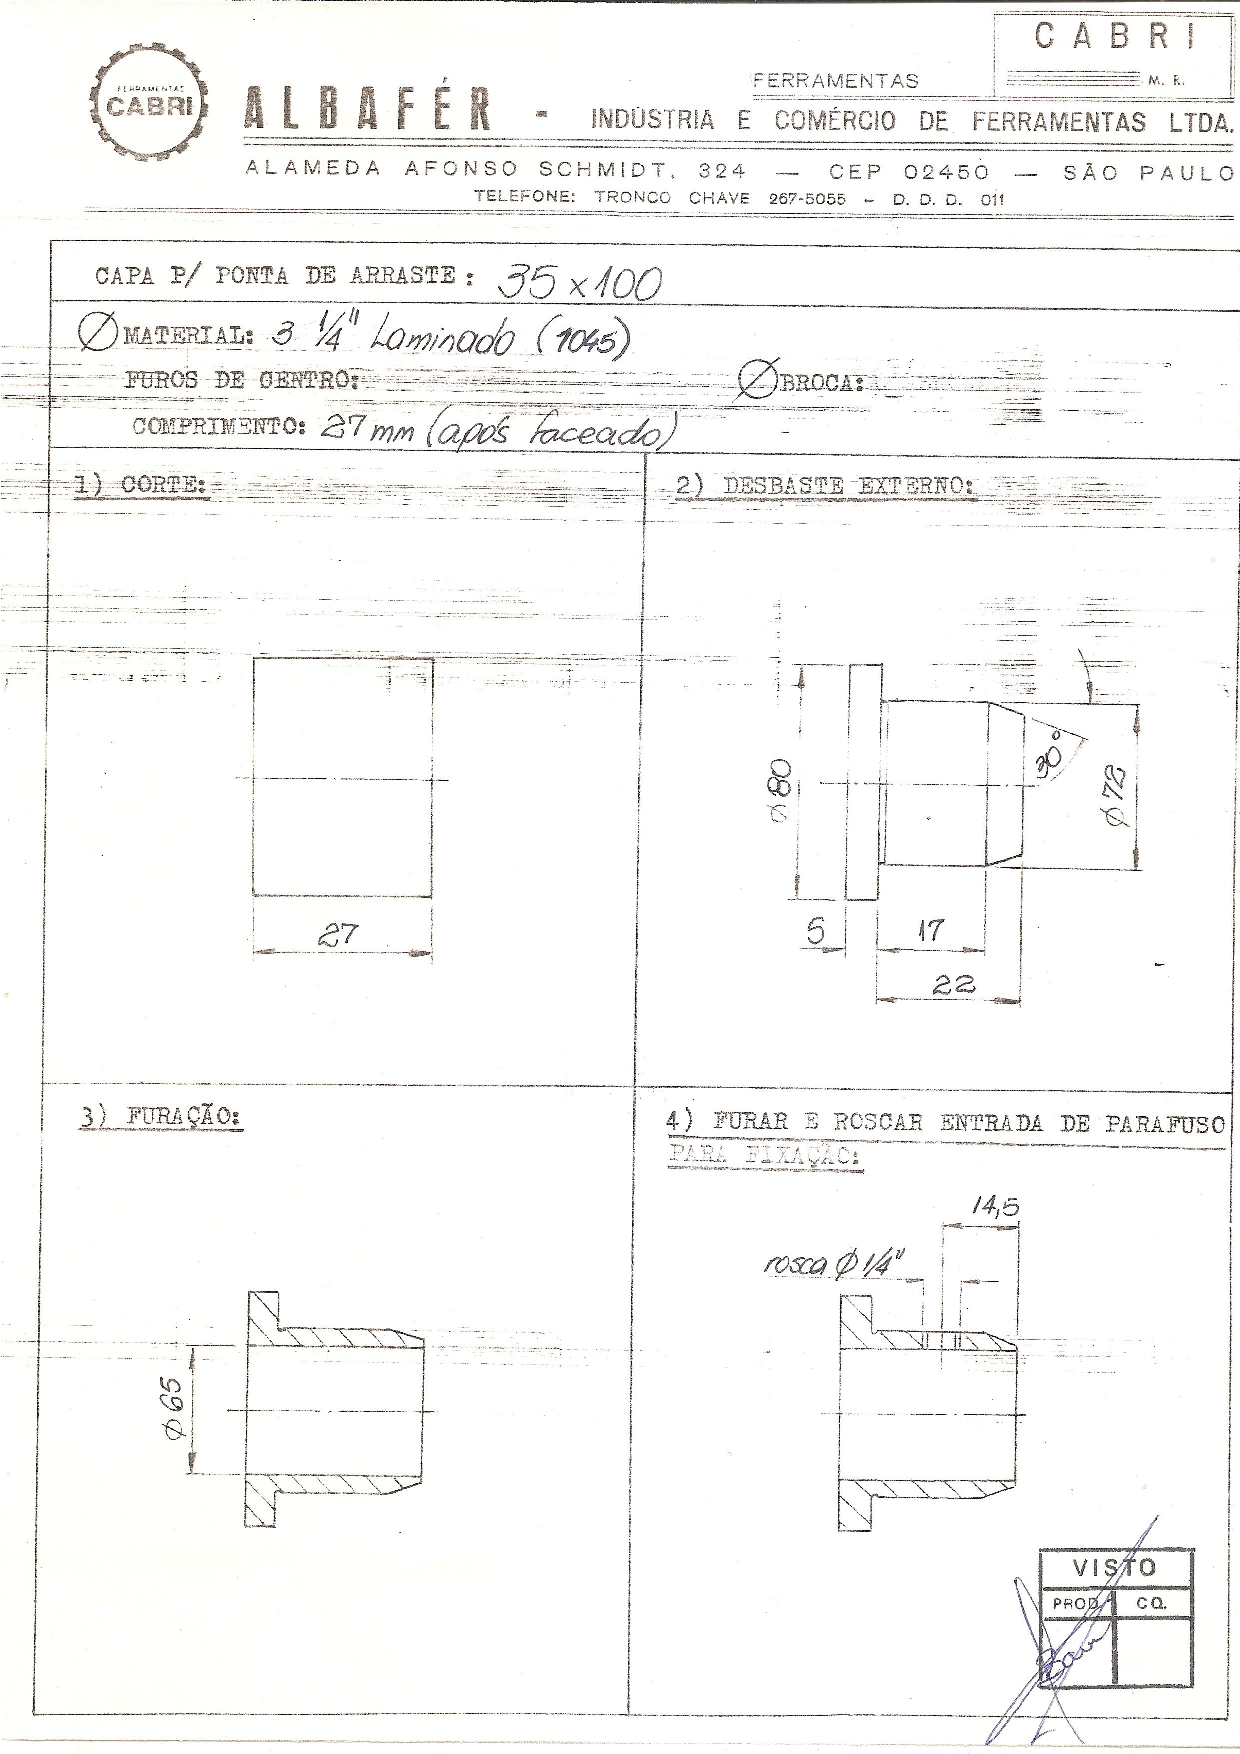 CABRI
M. R.
FERRAMENTAS
CABRI
FERRAMENTAS
ALBAFÉR - INDÚSTRIA E COMÉRCIO DE FERRAMENTAS LTDA.
ALAMEDA AFONSO SCHMIDT, 324 — CEP 02450 — SÃO PAULO
TELEFONE: TRONCO CHAVE 267-5055 - D. D. D. 011
CAPA P/ PONTA DE ARRASTE: 35 x 100
Ø MATERIAL: 3 1/4" Laminado (1045)
FUROS DE CENTRO: Ø BROCA:
COMPRIMENTO: 27 mm (após faceado)
1) CORTE:
27
2) DESBASTE EXTERNO:
Ø 80
30°
Ø 72
5
17
22
3) FURAÇÃO:
Ø 65
4) FURAR E ROSCAR ENTRADA DE PARAFUSO
PARA FIXAÇÃO:
14,5
rosca Ø 1/4"
VISTO
PROD. CQ.